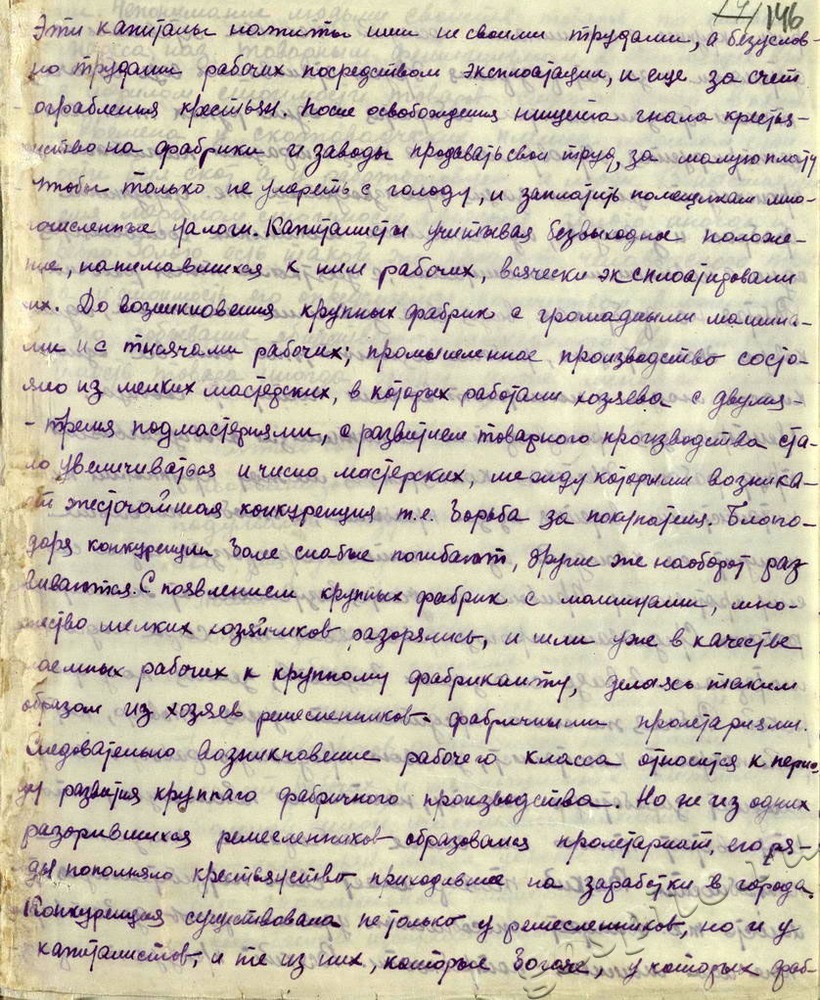 17/146
Эти капиталы нажиты ими не своими трудами, а безуслов-
но трудами рабочих посредством эксплоатации, и еще за счет
ограбления крестьян. После освобождения нищета гнала кресть-
янство на фабрики и заводы продавать свой труд, за малую плату
чтобы только не умереть с голоду, и заплатить помещикам мно-
гочисленные налоги. Капиталисты учитывая безвыходное положе-
ние, нанимавшихся к ним рабочих, всячески эксплоатировали
их. До возникновения крупных фабрик с громадными машина-
ми и с тысячами рабочих; промышленное производство состо-
яло из мелких мастерских, в которых работали хозяева с двумя-
-тремя подмастерьями, с развитием товарного производства ста-
ло увеличиваться и число мастерских, между которыми возника-
ет жесточайшая конкуренция т.е. борьба за покупателя. Благо-
даря конкуренции более слабые погибают, другие же наоборот раз
виваются. С появлением крупных фабрик с машинами, мно-
жество мелких хозяйчиков разорялись, и шли уже в качестве
наемных рабочих к крупному фабриканту, делаясь таким
образом из хозяев ремесленников фабричными пролетариями.
Следовательно возникновение рабочего класса относится к перио-
ду развития крупнаго фабричного производства. Но не из одних
разорившихся ремесленников образовался пролетариат, его ря-
ды пополняло крестьянство приходившее на заработки в города.
Конкуренция существовала не только у ремесленников, но и у
капиталистов, и те из них, которые богаче, у которых фаб-